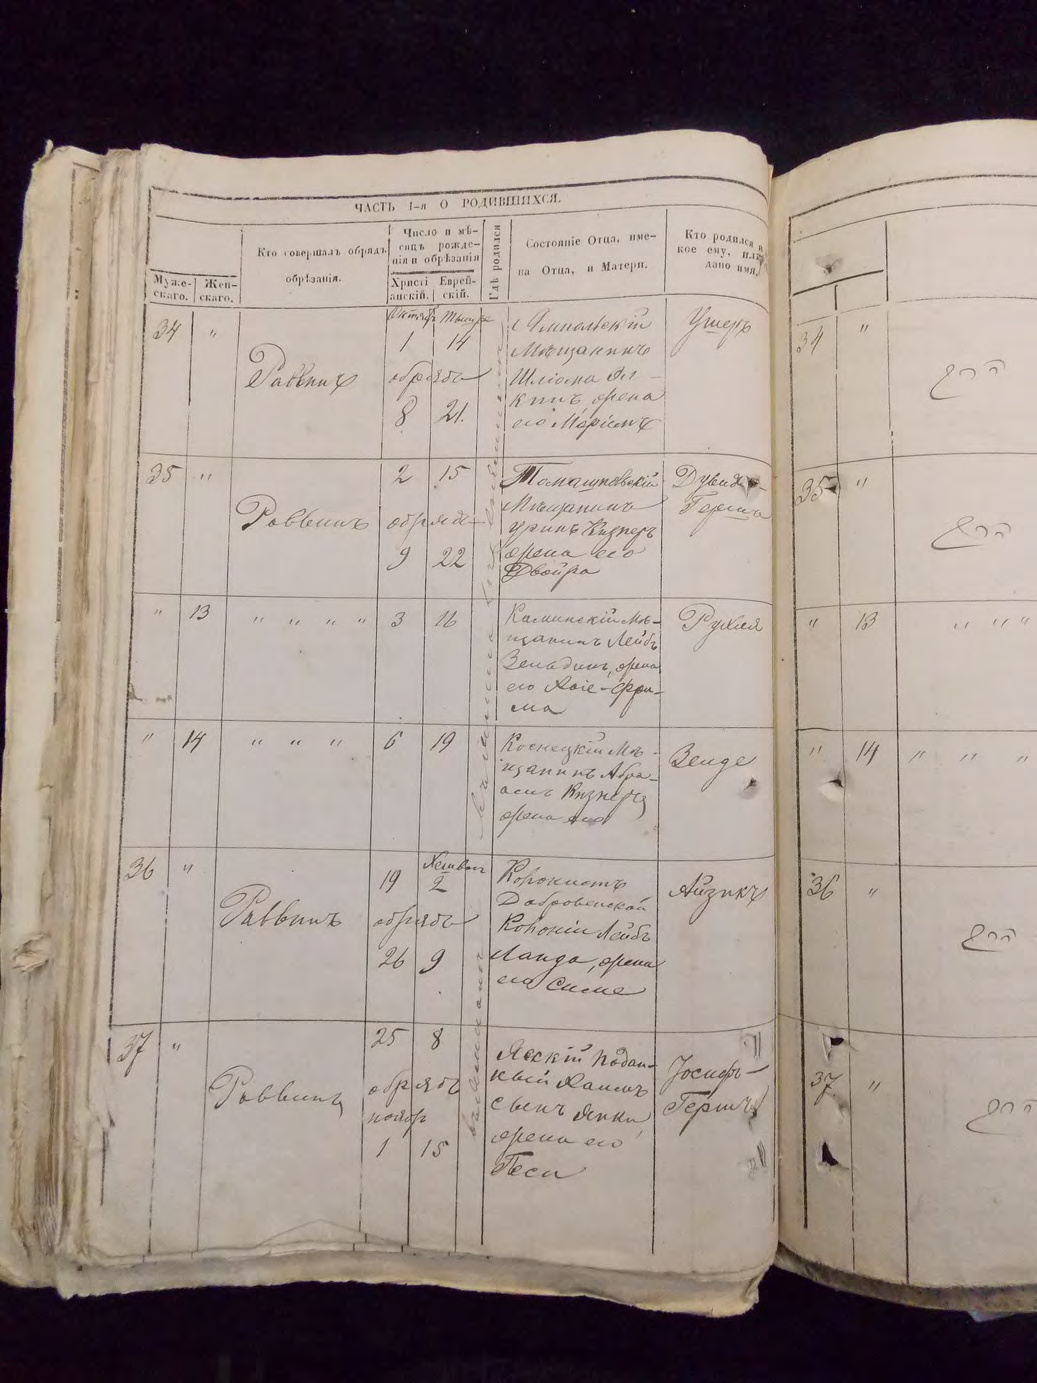 ЧАСТЬ I-я О РОДИВШИХСЯ.
Муже-
скаго.
Жен-
скаго.
Кто совершалъ обрядъ
обрѣзанія.
Число и мѣ-
сяцъ рожде-
нія и обрѣзанія
Христі
анскій.
Еврей-
скій.
Гдѣ родился
Состояніе Отца, име-
на Отца, и Матери.
Кто родился и
кое ему, или
дано имя,
34 "
Раввинъ
Октябр Тишре
1 14
обрядъ
8 21.
Ямпольскій
Мѣщанинъ
Шліома
жена
его Маріимъ
Ушеръ
35 "
Раввинъ
2 15
обряда
9 22
Томашповскій
Мѣщанинъ
Кизнеръ
жена его
Двойра
Дувидъ-
Герша
" 13 " " " " 3 16
Каминскій Мѣ-
щанинъ Лейбъ
жена
его Хаіе-Фру-
ма
Рухля
" 14 " " " 6 19
Коснецкій Мѣ-
щанинъ Абра-
амъ Кизнеръ
жена его
Зенде
36 "
Раввинъ
19 Хешван 2
обрядъ
26 9
Колонистъ
Добровенской
Колоніи Лейбъ
Ланда, жена
его Симе
Айзикъ
37 "
Раввинъ
25 8
обрядъ
ноябр
1 15
Ясскій Подан-
ный Хаимъ
сынъ
жена его
Песи
Іосифъ-
Гершъ
34 "
הרב
35 "
הרב
" 13 " " "
" 14 " " "
36 "
הרב
37 "
הרב